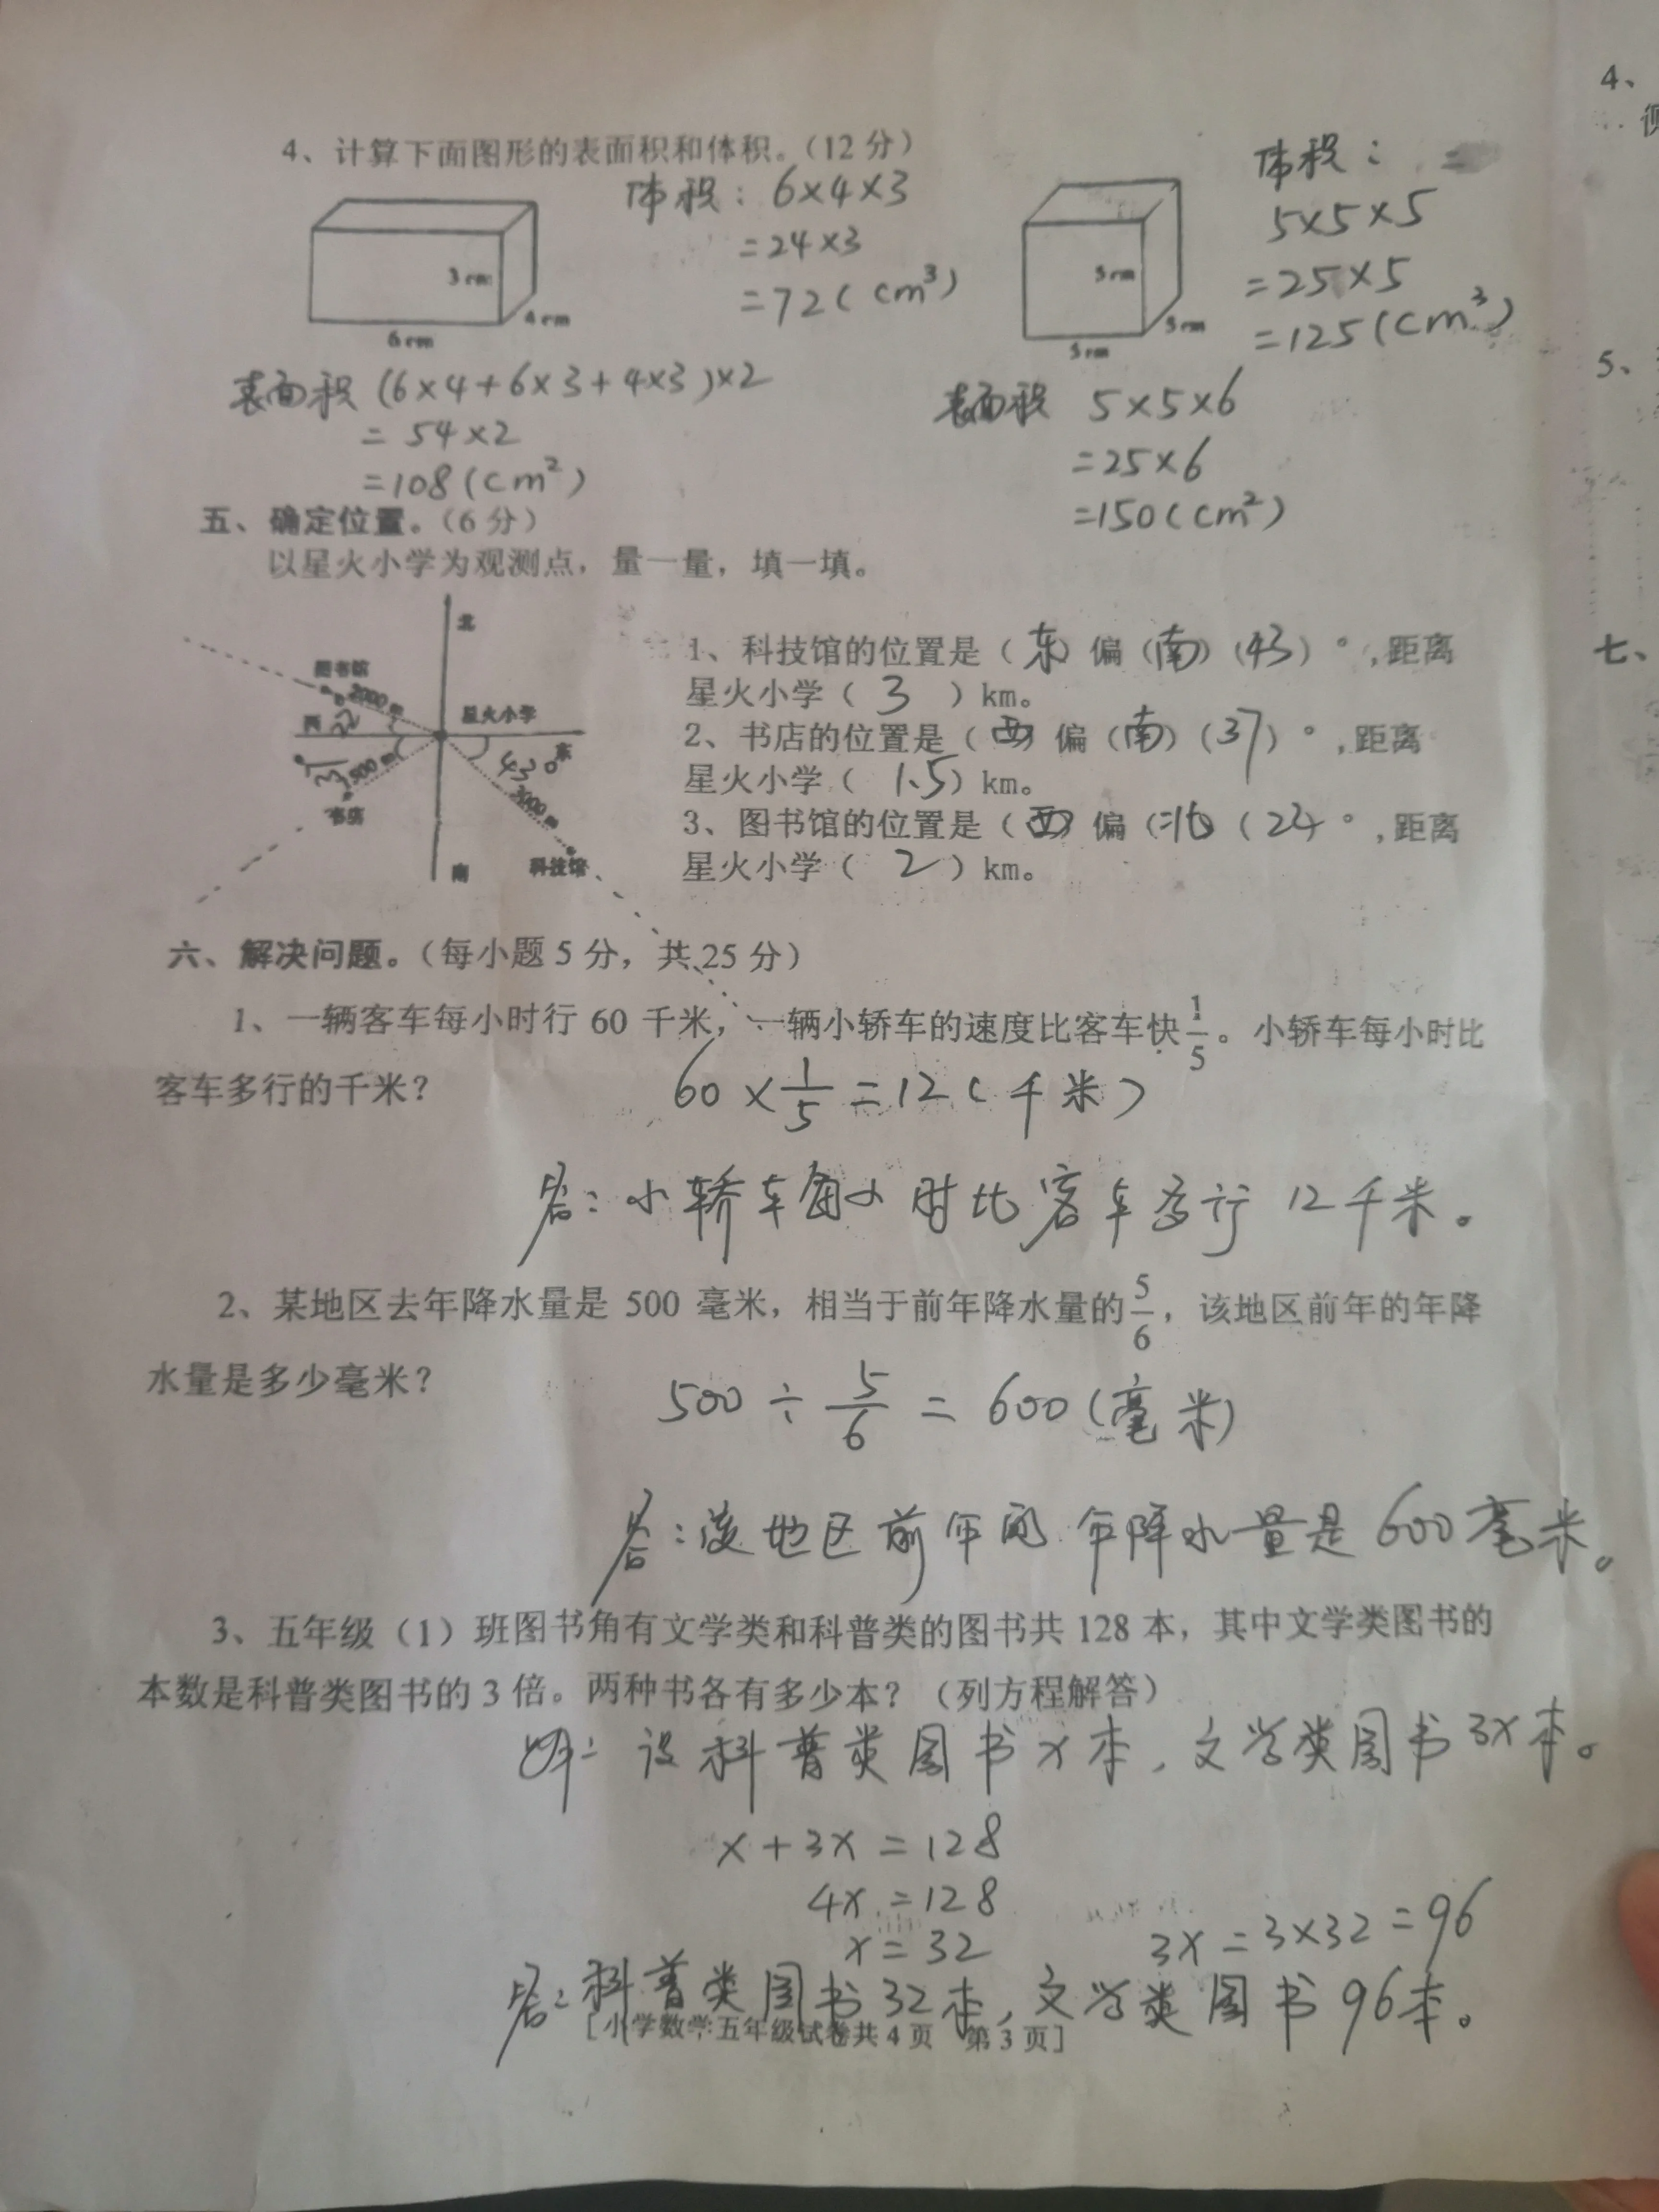 4、计算下面图形的表面积和体积。(12分)
体积：6×4×3
=24×3
=72(cm³)
3cm
4cm
6cm
表面积 (6×4+6×3+4×3)×2
=54×2
=108(cm²)
体积：
5×5×5
=25×5
=125(cm³)
5cm
5cm
5cm
表面积 5×5×6
=25×6
=150(cm²)
五、确定位置。(6分)
以星火小学为观测点，量一量，填一填。
北
图书馆
2000m
西
星火小学
东
43°
500m
书店
3000m
科技馆
南
1、科技馆的位置是（东）偏（南）（43）°，距离
星火小学（3）km。
2、书店的位置是（西）偏（南）（37）°，距离
星火小学（1.5）km。
3、图书馆的位置是（西）偏（北）（22）°，距离
星火小学（2）km。
六、解决问题。(每小题5分，共25分)
1、一辆客车每小时行60千米，一辆小轿车的速度比客车快1/5。小轿车每小时比
客车多行的千米？
60×1/5=12(千米)
答：小轿车每小时比客车多行12千米。
2、某地区去年降水量是500毫米，相当于前年降水量的5/6，该地区前年的年降
水量是多少毫米？
500÷5/6=600(毫米)
答：该地区前年的年降水量是600毫米。
3、五年级（1）班图书角有文学类和科普类的图书共128本，其中文学类图书的
本数是科普类图书的3倍。两种书各有多少本？（列方程解答）
解：设科普类图书x本，文学类图书3x本。
x+3x=128
4x=128
x=32
3x=3×32=96
答：科普类图书32本，文学类图书96本。
[小学数学五年级试卷共4页 第3页]
4、
5、
七、